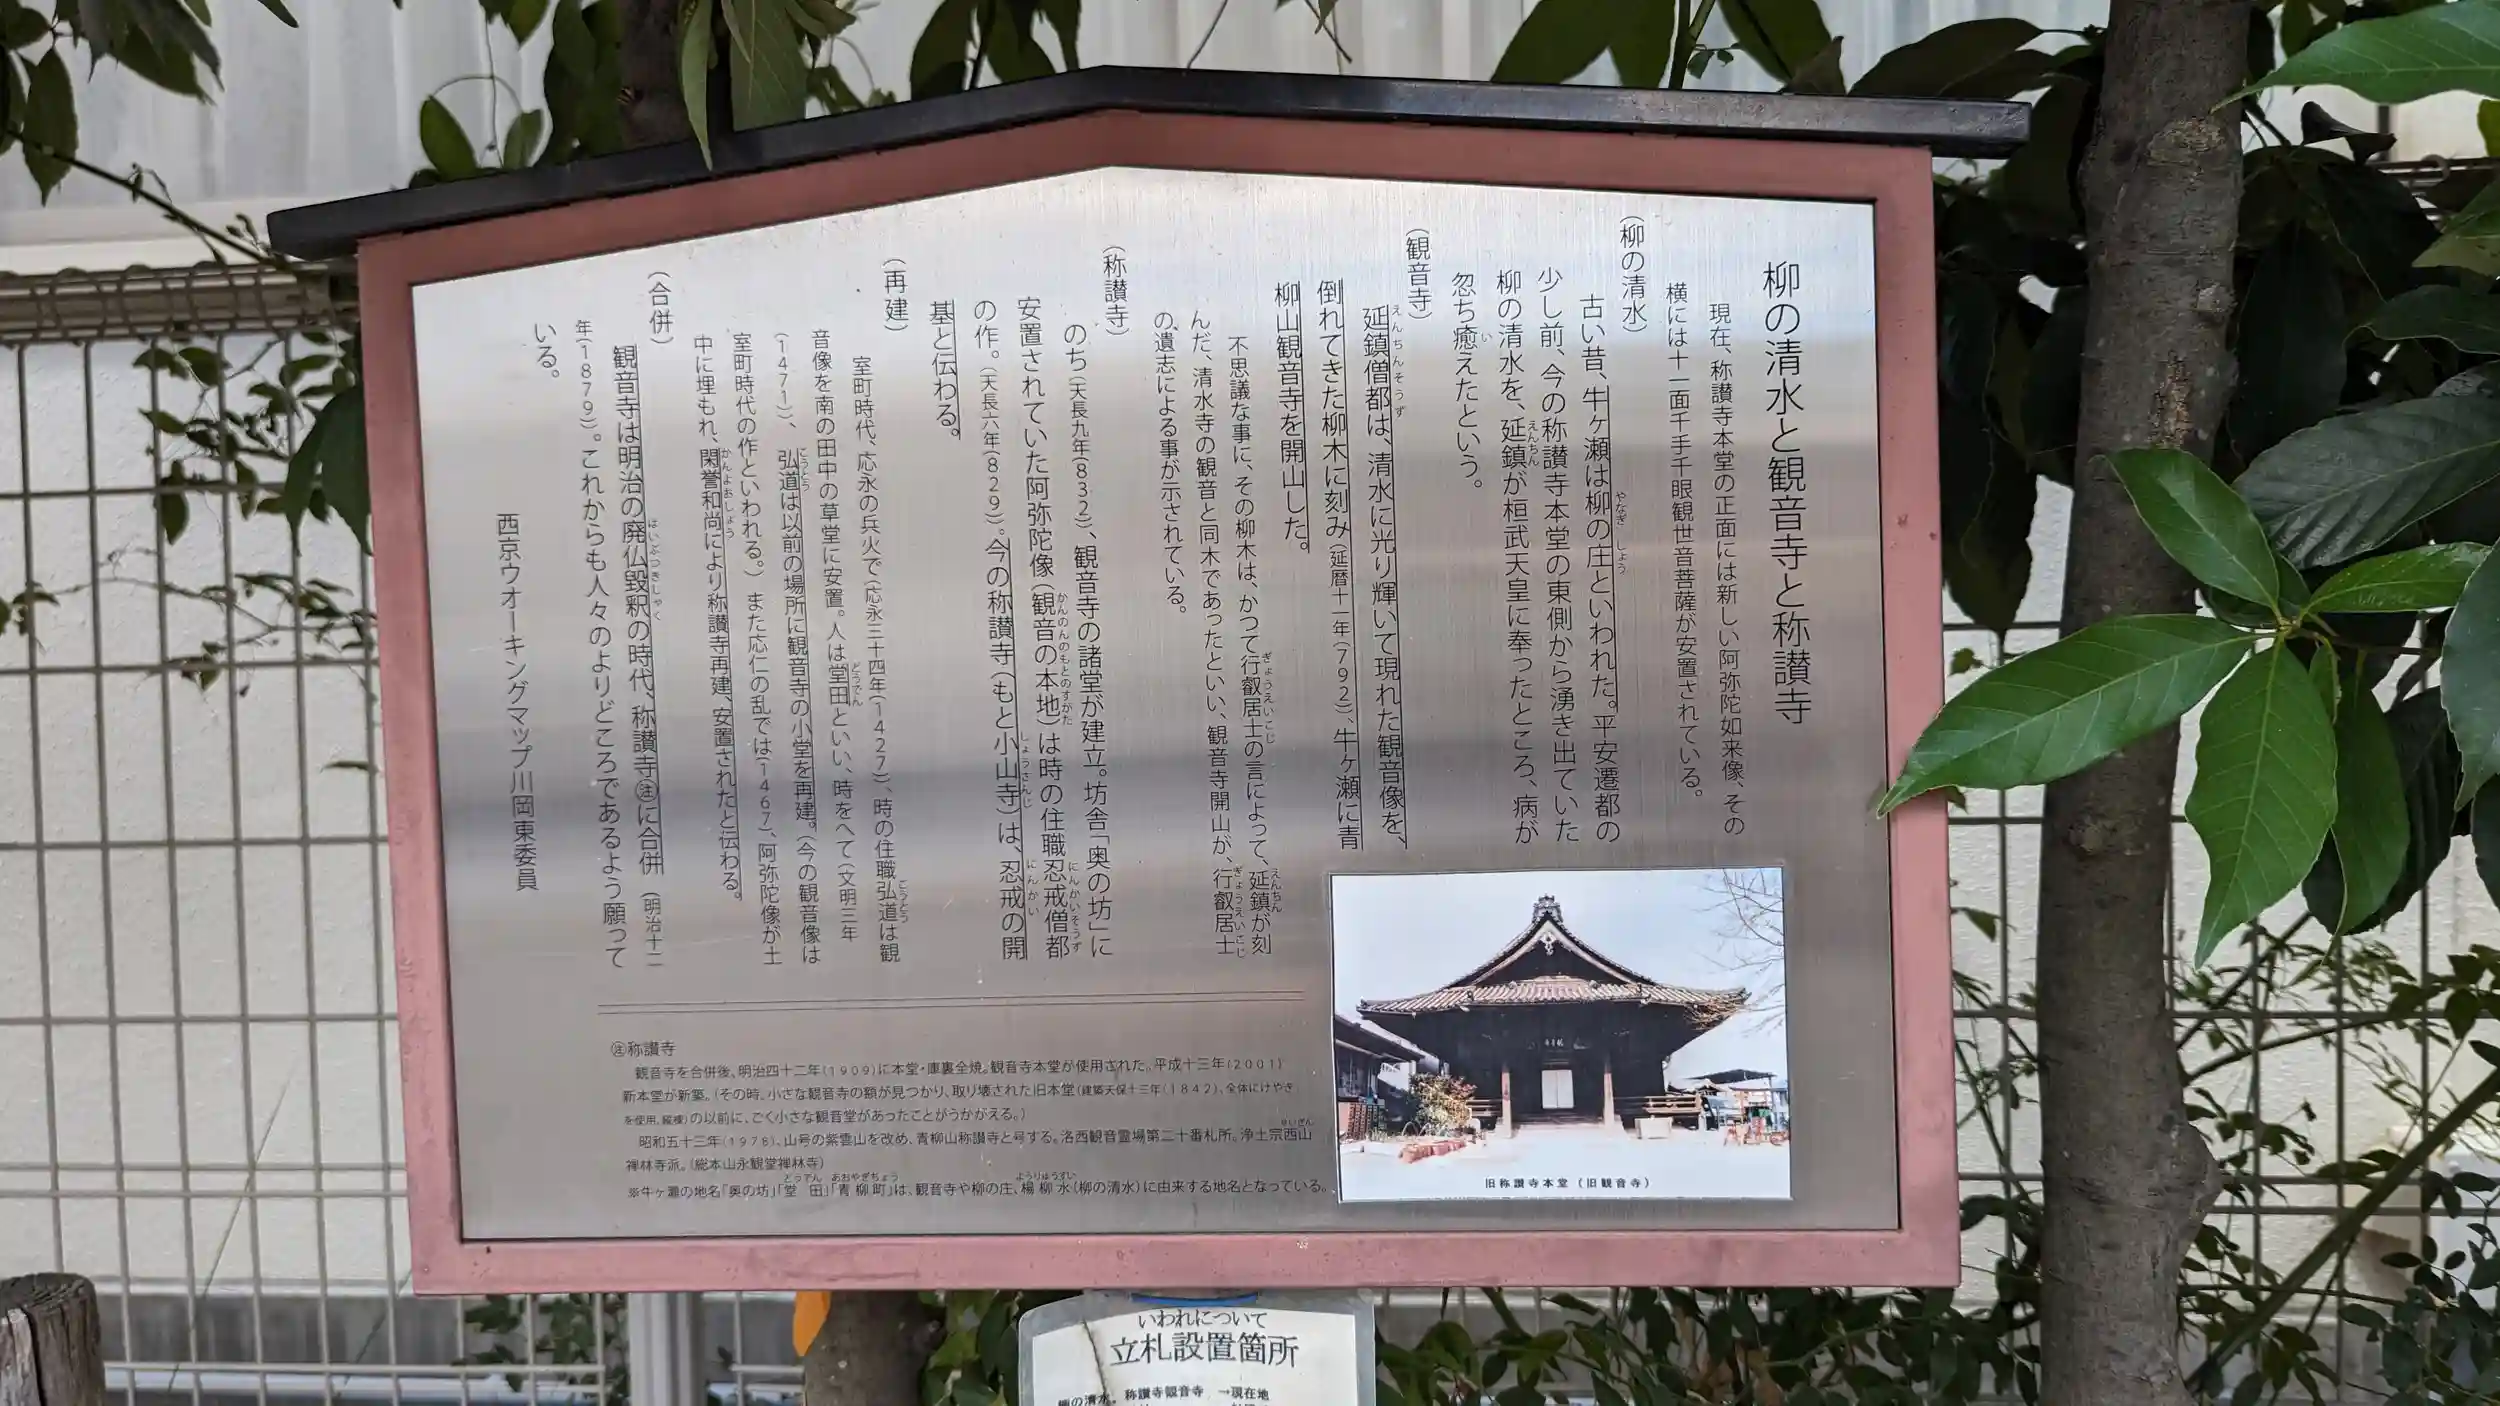 柳の清水と観音寺と称讃寺
現在、称讃寺本堂の正面には新しい阿弥陀如来像、その
横には十一面千手千眼観世音菩薩が安置されている。
(柳の清水)
古い昔、牛ヶ瀬は柳の庄といわれた。平安遷都の
やなぎ しょう
少し前、今の称讃寺本堂の東側から湧き出ていた
柳の清水を、延鎮が桓武天皇に奉ったところ、病が
えんちん
忽ち癒えたという。
い
(観音寺)
延鎮僧都は、清水に光り輝いて現れた観音像を、
えんちんそうず
倒れてきた柳木に刻み(延暦十一年(792)、牛ヶ瀬に青
柳山観音寺を開山した。
不思議な事に、その柳木は、かつて行叡居士の言によって、延鎮が刻
ぎょうえいこじ えんちん
んだ、清水寺の観音と同木であったといい、観音寺開山が、行叡居士
ぎょうえいこじ
の遺志による事が示されている。
(称讃寺)
のち(天長九年(832)、観音寺の諸堂が建立。坊舎「奥の坊」に
安置されていた阿弥陀像(観音の本地)は時の住職忍戒僧都
かんのんのもとのすがた にんかいそうず
の作。(天長六年(829)。今の称讃寺(もと小山寺)は、忍戒の開
しょうさんじ にんかい
基と伝わる。
(再建)
室町時代、応永の兵火で(応永三十四年(1427)、時の住職弘道は観
こうどう
音像を南の田中の草堂に安置。人は堂田といい、時をへて(文明三年
どうでん
(1471)、弘道は以前の場所に観音寺の小堂を再建。(今の観音像は
こうどう
室町時代の作といわれる。)また応仁の乱では(1467)、阿弥陀像が土
中に埋もれ、閑誉和尚により称讃寺再建、安置されたと伝わる。
かんよおしょう
(合併)
観音寺は明治の廃仏毀釈の時代、称讃寺㊟に合併(明治十二
はいぶつきしゃく
年(1879)。これからも人々のよりどころであるよう願って
いる。
西京ウオーキングマップ川岡東委員
㊟称讃寺
観音寺を合併後、明治四十二年(1909)に本堂・庫裏全焼。観音寺本堂が使用された。平成十三年(2001)
新本堂が新築。(その時、小さな観音寺の額が見つかり、取り壊された旧本堂(建築天保十三年(1842)、全体にけやき
を使用、縦棟)の以前に、ごく小さな観音堂があったことがうかがえる。)
昭和五十三年(1978)、山号の紫雲山を改め、青柳山称讃寺と号する。洛西観音霊場第二十番札所。浄土宗西山
せいざん
禅林寺派。(総本山永観堂禅林寺)
※牛ヶ瀬の地名「奥の坊」「堂田」「青柳町」は、観音寺や柳の庄、楊柳水(柳の清水)に由来する地名となっている。
どうでん あおやぎちょう ようりゅうすい
旧称讃寺本堂(旧観音寺)
いわれについて
立札設置箇所
柳の清水。称讃寺観音寺 →現在地